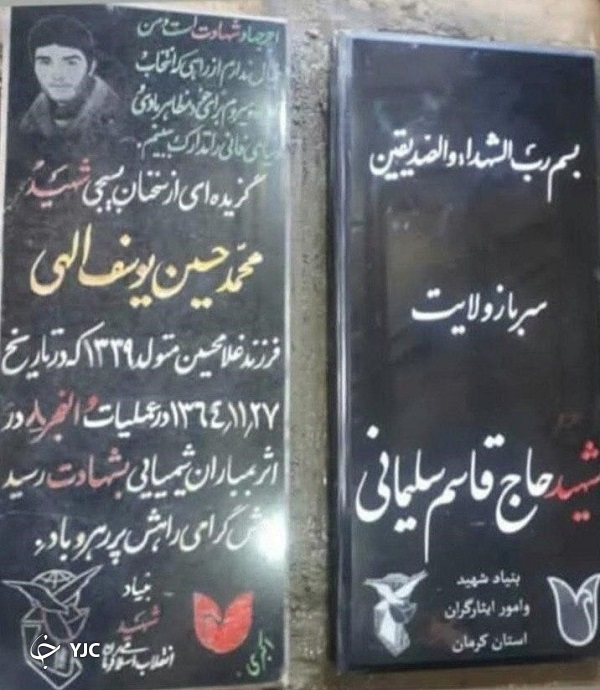 بسم رب الشهداء والصدیقین
سرباز ولایت
شهید حاج قاسم سلیمانی
بنیاد شهید
وامور ایثارگران
استان کرمان
اجر جهاد شهادت است و من
ندارم از راهی که انتخاب
فانی را تدارک ببینم.
گزیده‌ای از سخنان بسیجی شهید
محمد حسین یوسف الهی
فرزند غلامحسین متولد ۱۳۳۹ که در تاریخ
۱۳۶٤٫۱۱٫۲۷ در عملیات والفجر ۸ در
اثر بمباران شیمیایی بشهادت رسید
گرامی راهش پر رهرو باد.
بنیاد
شهید
انقلاب اسلامی
اکبری
YJC